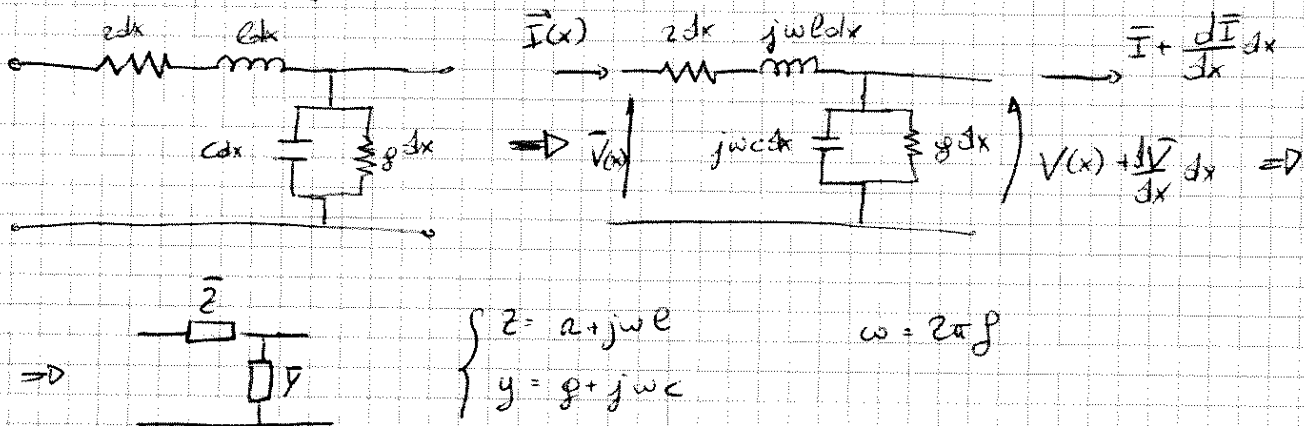 rdx ldx
cdx gdx
Ī(x) rdx jωldx Ī + dĪ/dx dx
⇒ V̄(x) jωcdx gdx V(x) + dV̄/dx dx ⇒
Z̄
⇒ Ȳ
{ z = r + jωl ω = 2πf
y = g + jωc